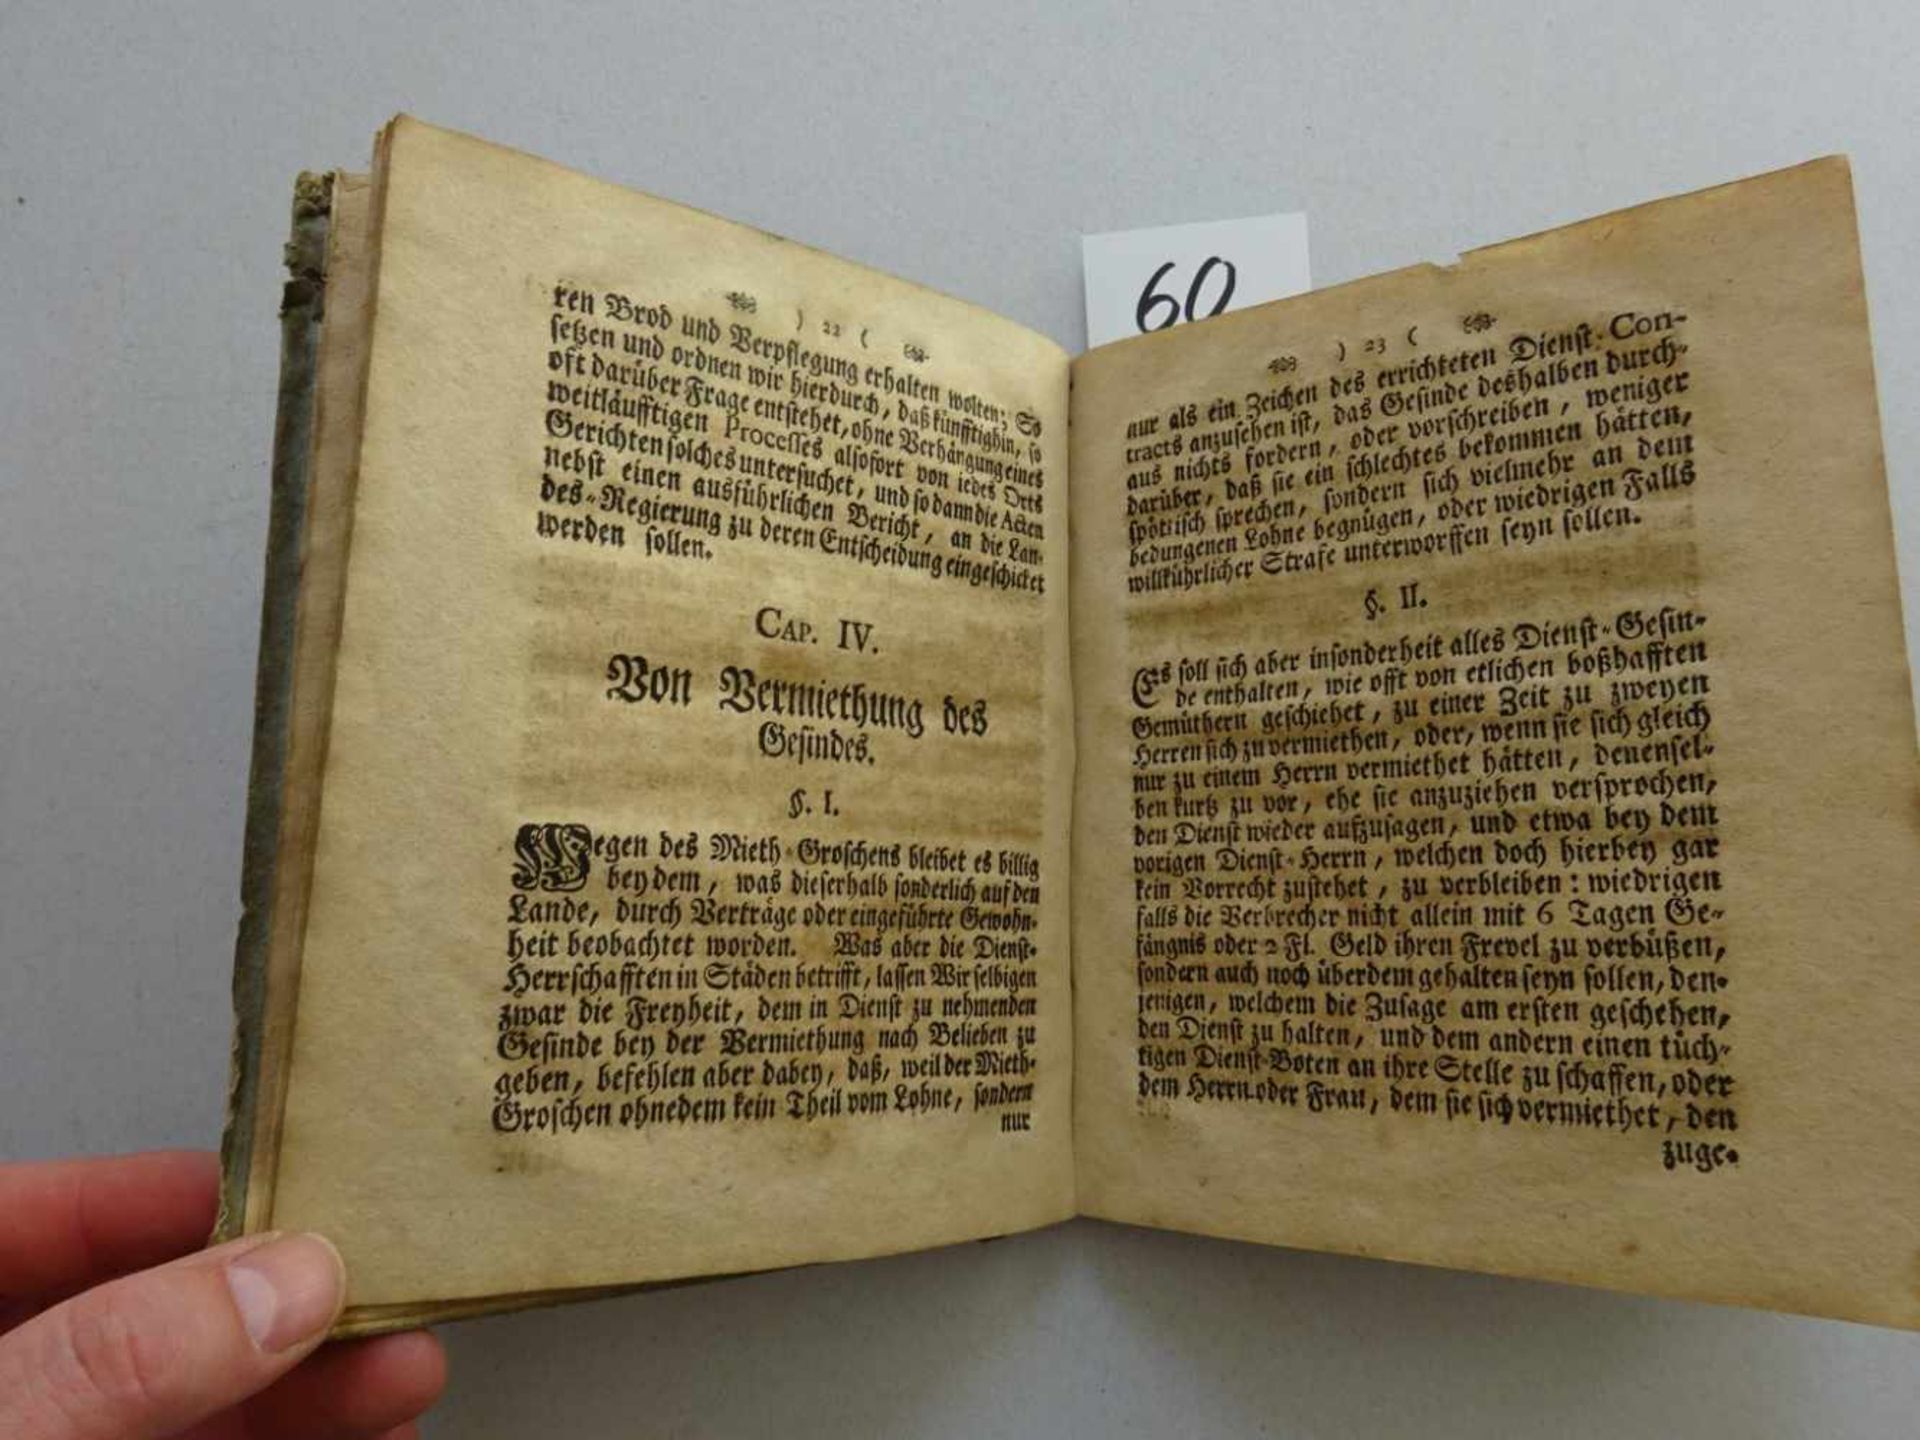 ) 22 (
ren Brod und Verpflegung erhalten wolten; So
setzen und ordnen wir hierdurch, daß künfftighin, so
oft darüber Frage entstehet, ohne Verhängung eines
weitläufftigen Processes alsofort von iedes Orts
Gerichten solches untersuchet, und so dann die Acten
nebst einen ausführlichen Bericht, an die Lan-
des-Regierung zu deren Entscheidung eingeschicket
werden sollen.
CAP. IV.
Von Vermiethung des
Gesindes.
§. I.
Wegen des Mieth-Groschens bleibet es billig
bey dem, was dieserhalb sonderlich auf den
Lande, durch Verträge oder eingeführte Gewohn-
heit beobachtet worden. Was aber die Dienst-
Herrschafften in Städen betrifft, lassen Wir selbigen
zwar die Freyheit, dem in Dienst zu nehmenden
Gesinde bey der Vermiethung nach Belieben zu
geben, befehlen aber dabey, daß, weil der Mieth-
Groschen ohnedem kein Theil vom Lohne, sondern
nur
60
) 23 (
nur als ein Zeichen des errichteten Dienst-Con-
tracts anzusehen ist, das Gesinde deshalben durch-
aus nichts fordern, oder vorschreiben, weniger
darüber, daß sie ein schlechtes bekommen hätten,
spöttisch sprechen, sondern sich vielmehr an dem
bedungenen Lohne begnügen, oder wiedrigen Falls
willkührlicher Strafe unterworffen seyn sollen.
§. II.
Es soll sich aber insonderheit alles Dienst-Gesin-
de enthalten, wie offt von etlichen boßhafften
Gemüthern geschiehet, zu einer Zeit zu zweyen
Herren sich zu vermiethen, oder, wenn sie sich gleich
nur zu einem Herrn vermiethet hätten, denensel-
ben kurtz zu vor, ehe sie anzuziehen versprochen,
den Dienst wieder aufzusagen, und etwa bey dem
vorigen Dienst-Herrn, welchen doch hierbey gar
kein Vorrecht zustehet, zu verbleiben: wiedrigen
falls die Verbrecher nicht allein mit 6 Tagen Ge-
fängnis oder 2 Fl. Geld ihren Frevel zu verbüßen,
sondern auch noch überdem gehalten seyn sollen, den-
jenigen, welchem die Zusage am ersten geschehen,
den Dienst zu halten, und dem andern einen tüch-
tigen Dienst-Boten an ihre Stelle zu schaffen, oder
dem Herrn oder Frau, dem sie sich vermiethet, den
zuge-